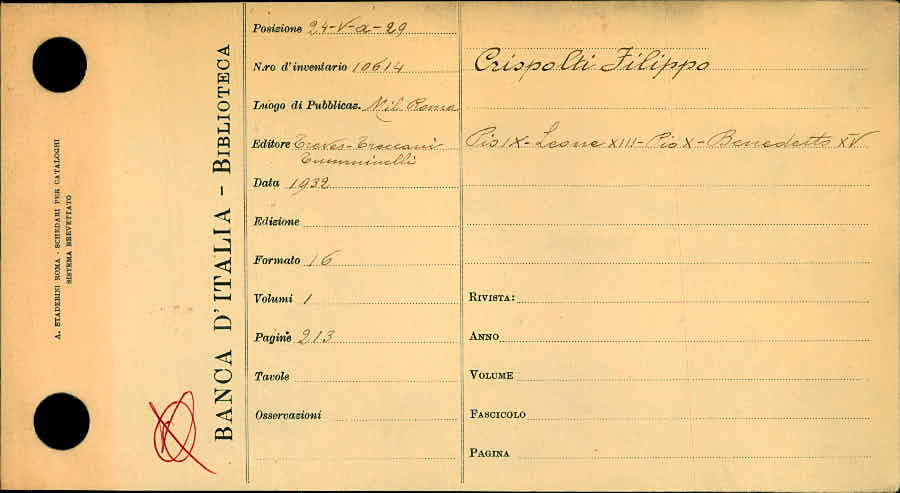 A. STADERINI ROMA - SCHEDARI PER CATALOGHI
SISTEMA BREVETTATO
BANCA D'ITALIA - BIBLIOTECA
Posizione 24-V-a-29
N.ro d'inventario 10614
Luogo di Pubblicaz. Mil Roma
Editore Treves-Treccani
Tumminelli
Data 1932
Edizione
Formato 16
Volumi 1
Pagine 213
Tavole
Osservazioni
Crispolti Filippo
Pio IX-Leone XIII-Pio X-Benedetto XV
RIVISTA:
ANNO
VOLUME
FASCICOLO
PAGINA